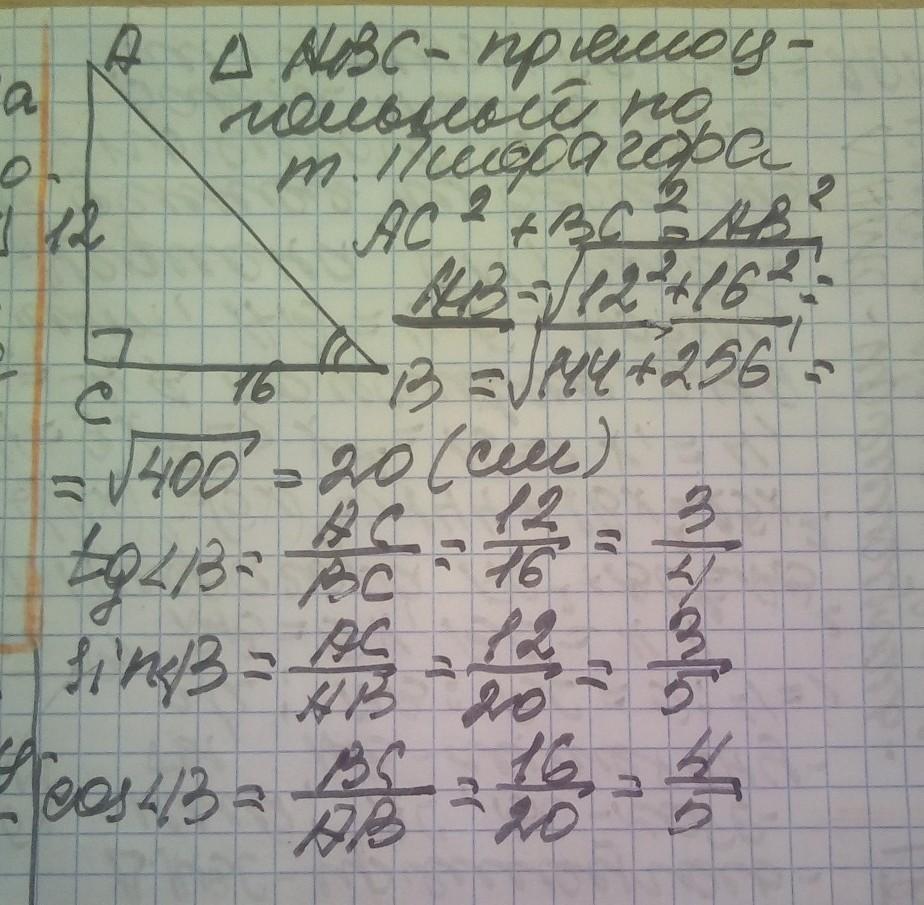 A
Δ ABC - прямоу-
гольный по
т. Пифагора
12
AC² + BC² = AB²
AB = √12² + 16² =
C
16
B
= √144 + 256 =
= √400 = 20 (см)
tg∠B = AC/BC = 12/16 = 3/4
sin∠B = AC/AB = 12/20 = 3/5
cos∠B = BC/AB = 16/20 = 4/5